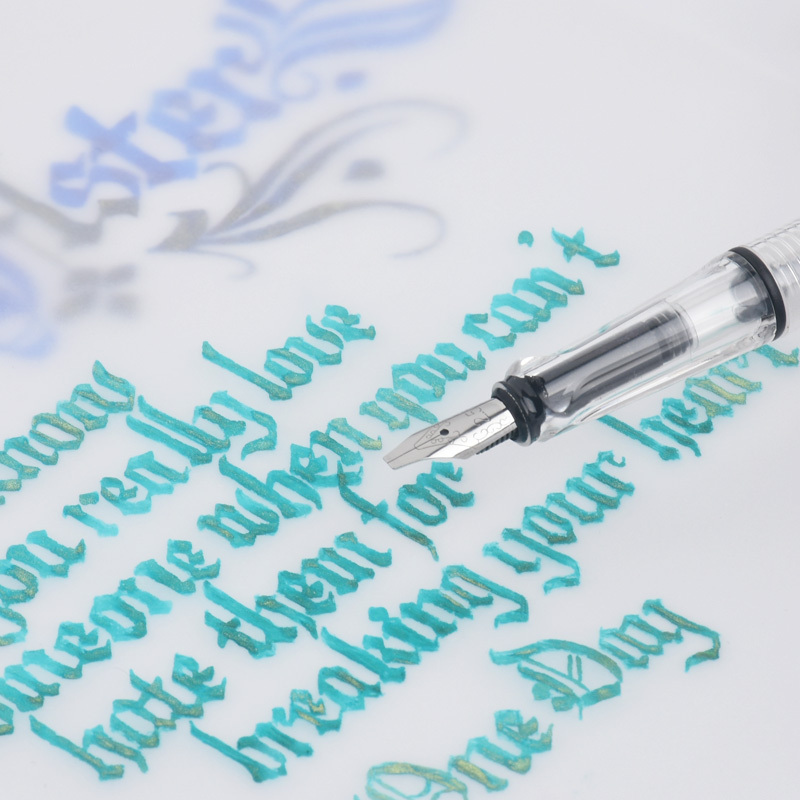 you really love
someone when you can't
hate them for
breaking your heart
One Day